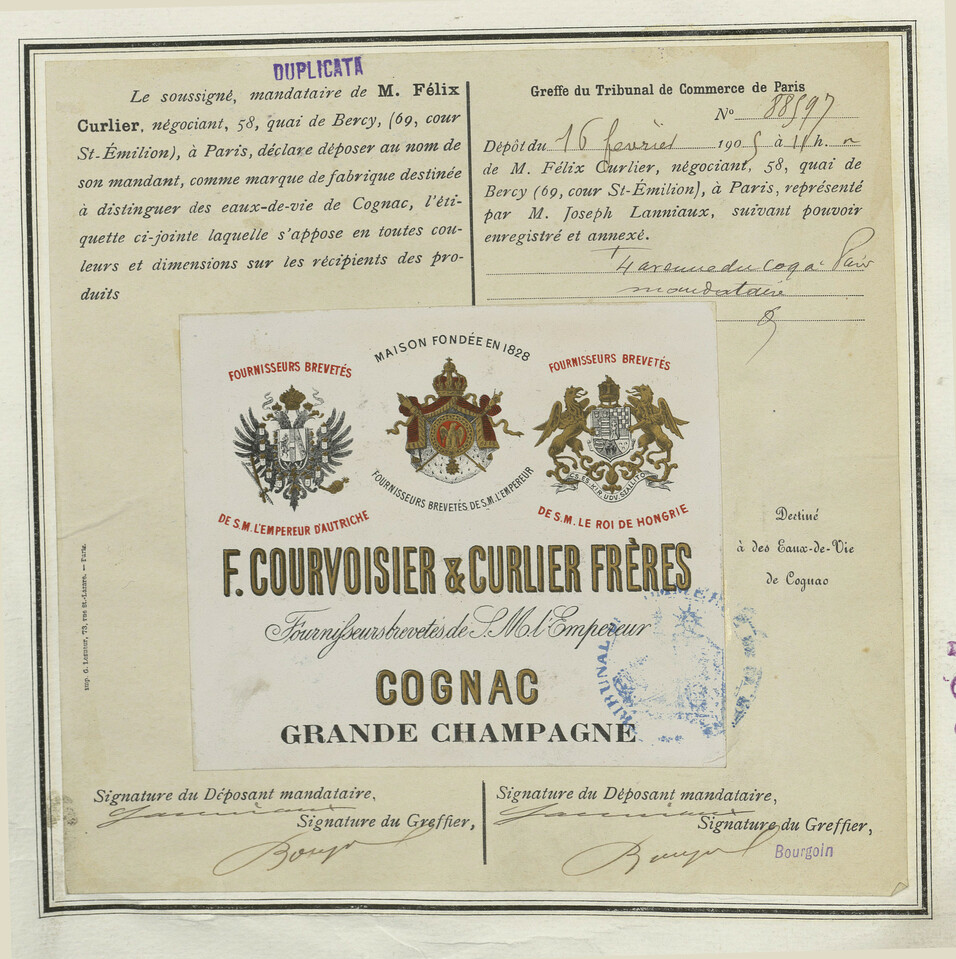 DUPLICATA
Le soussigné, mandataire de M. Félix
Curlier, négociant, 58, quai de Bercy, (69, cour
St-Émilion), à Paris, déclare déposer au nom de
son mandant, comme marque de fabrique destinée
à distinguer des eaux-de-vie de Cognac, l'éti-
quette ci-jointe laquelle s'appose en toutes cou-
leurs et dimensions sur les récipients des pro-
duits
Greffe du Tribunal de Commerce de Paris
No 88597
Dépôt du 16 février 1905 à 11 h.
de M. Félix Curlier, négociant, 58, quai de
Bercy (69, cour St-Émilion), à Paris, représenté
par M. Joseph Lanniaux, suivant pouvoir
enregistré et annexé.
4 avenue du coq à Paris
mandataire
MAISON FONDÉE EN 1828
FOURNISSEURS BREVETÉS
FOURNISSEURS BREVETÉS
FOURNISSEURS BREVETÉS DE S.M. L'EMPEREUR
DE S.M. L'EMPEREUR D'AUTRICHE
DE S.M. LE ROI DE HONGRIE
F. COURVOISIER & CURLIER FRÈRES
Fournisseurs brevetés de S.M. l'Empereur
COGNAC
GRANDE CHAMPAGNE
Destiné
à des Eaux-de-Vie
de Cognac
TRIBUNAL
Signature du Déposant mandataire,
Lanniaux
Signature du Greffier,
Signature du Déposant mandataire,
Lanniaux
Signature du Greffier,
Bourgoin